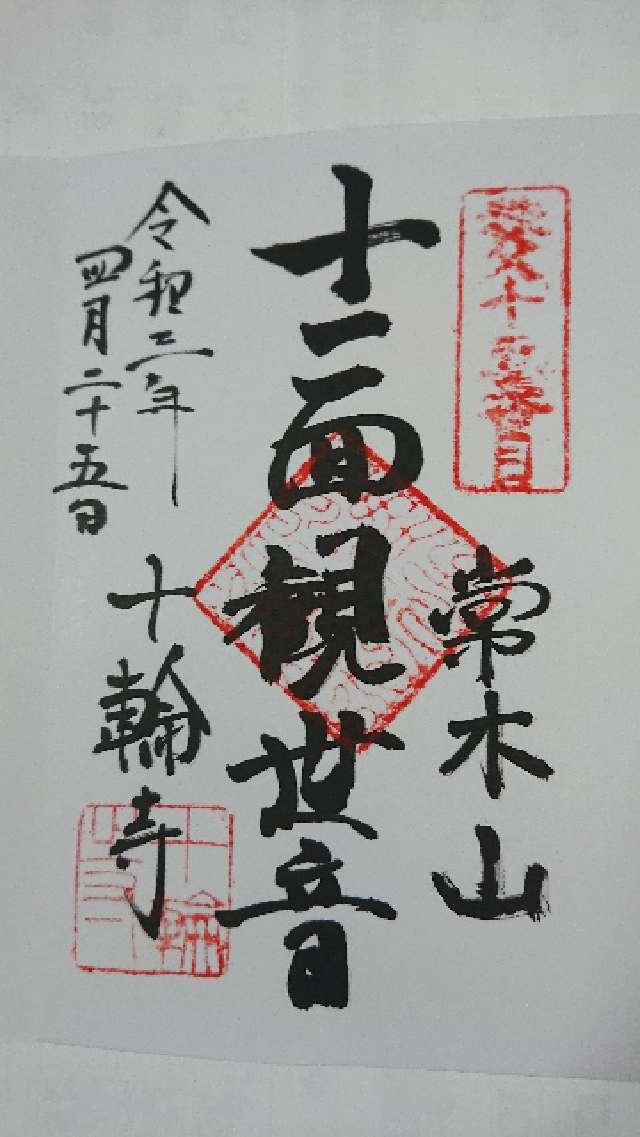 常木山
十一面観世音
令和三年
四月二十五日
十輪寺